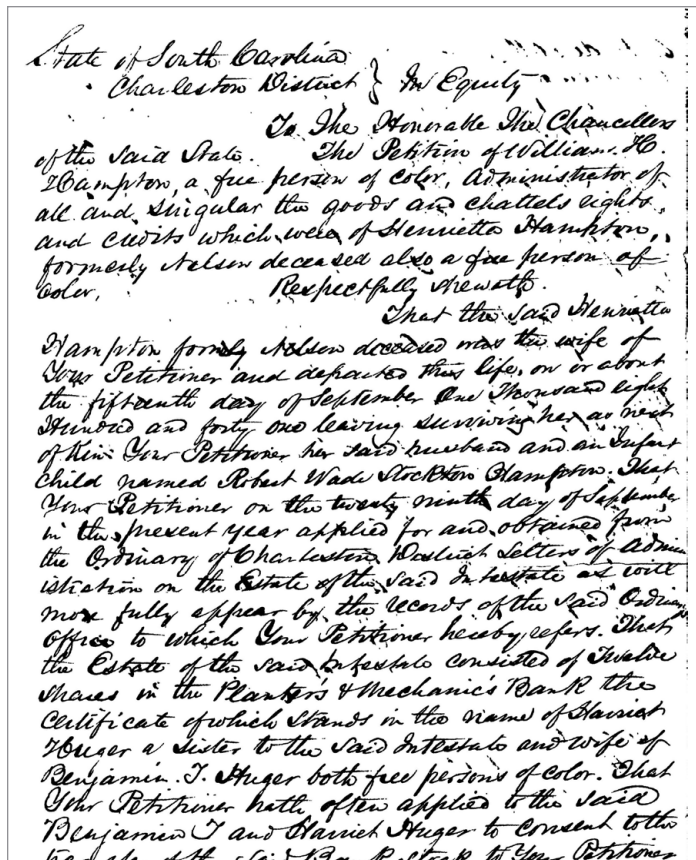 State of South Carolina
Charleston District } In Equity
To The Honorable The Chancellors
of the said State. The Petition of William. H.
Hampton, a free person of color, Administrator of
all and singular the goods and chattels rights
and credits which were of Henrietta Hampton,
formerly Nelson deceased also a free person of
Color, Respectfully sheweth.
That the said Henrietta
Hampton formerly Nelson deceased was the wife of
Your Petitioner and departed this life, on or about
the fifteenth day of September One Thousand eight
Hundred and forty one leaving surviving her as next
of Kin Your Petitioner her said husband and an Infant
child named Robert Wade Stockton Hampton. That
Your Petitioner on the twenty ninth day of September
in the present year applied for and obtained from
the Ordinary of Charleston District Letters of Admin
istration on the Estate of the said Intestate as will
more fully appear by the records of the said Ordinary
office to which Your Petitioner hereby refers. That
the Estate of the said Intestate consisted of Twelve
shares in the Planters & Mechanic's Bank the
Certificate of which stands in the name of Harriet
Huger a sister to the said Intestate and wife of
Benjamin. T. Huger both free persons of color. That
Your Petitioner hath often applied to the said
Benjamin T and Harriet Huger to consent to the
transfer of the said Bank stock to Your Petitioner